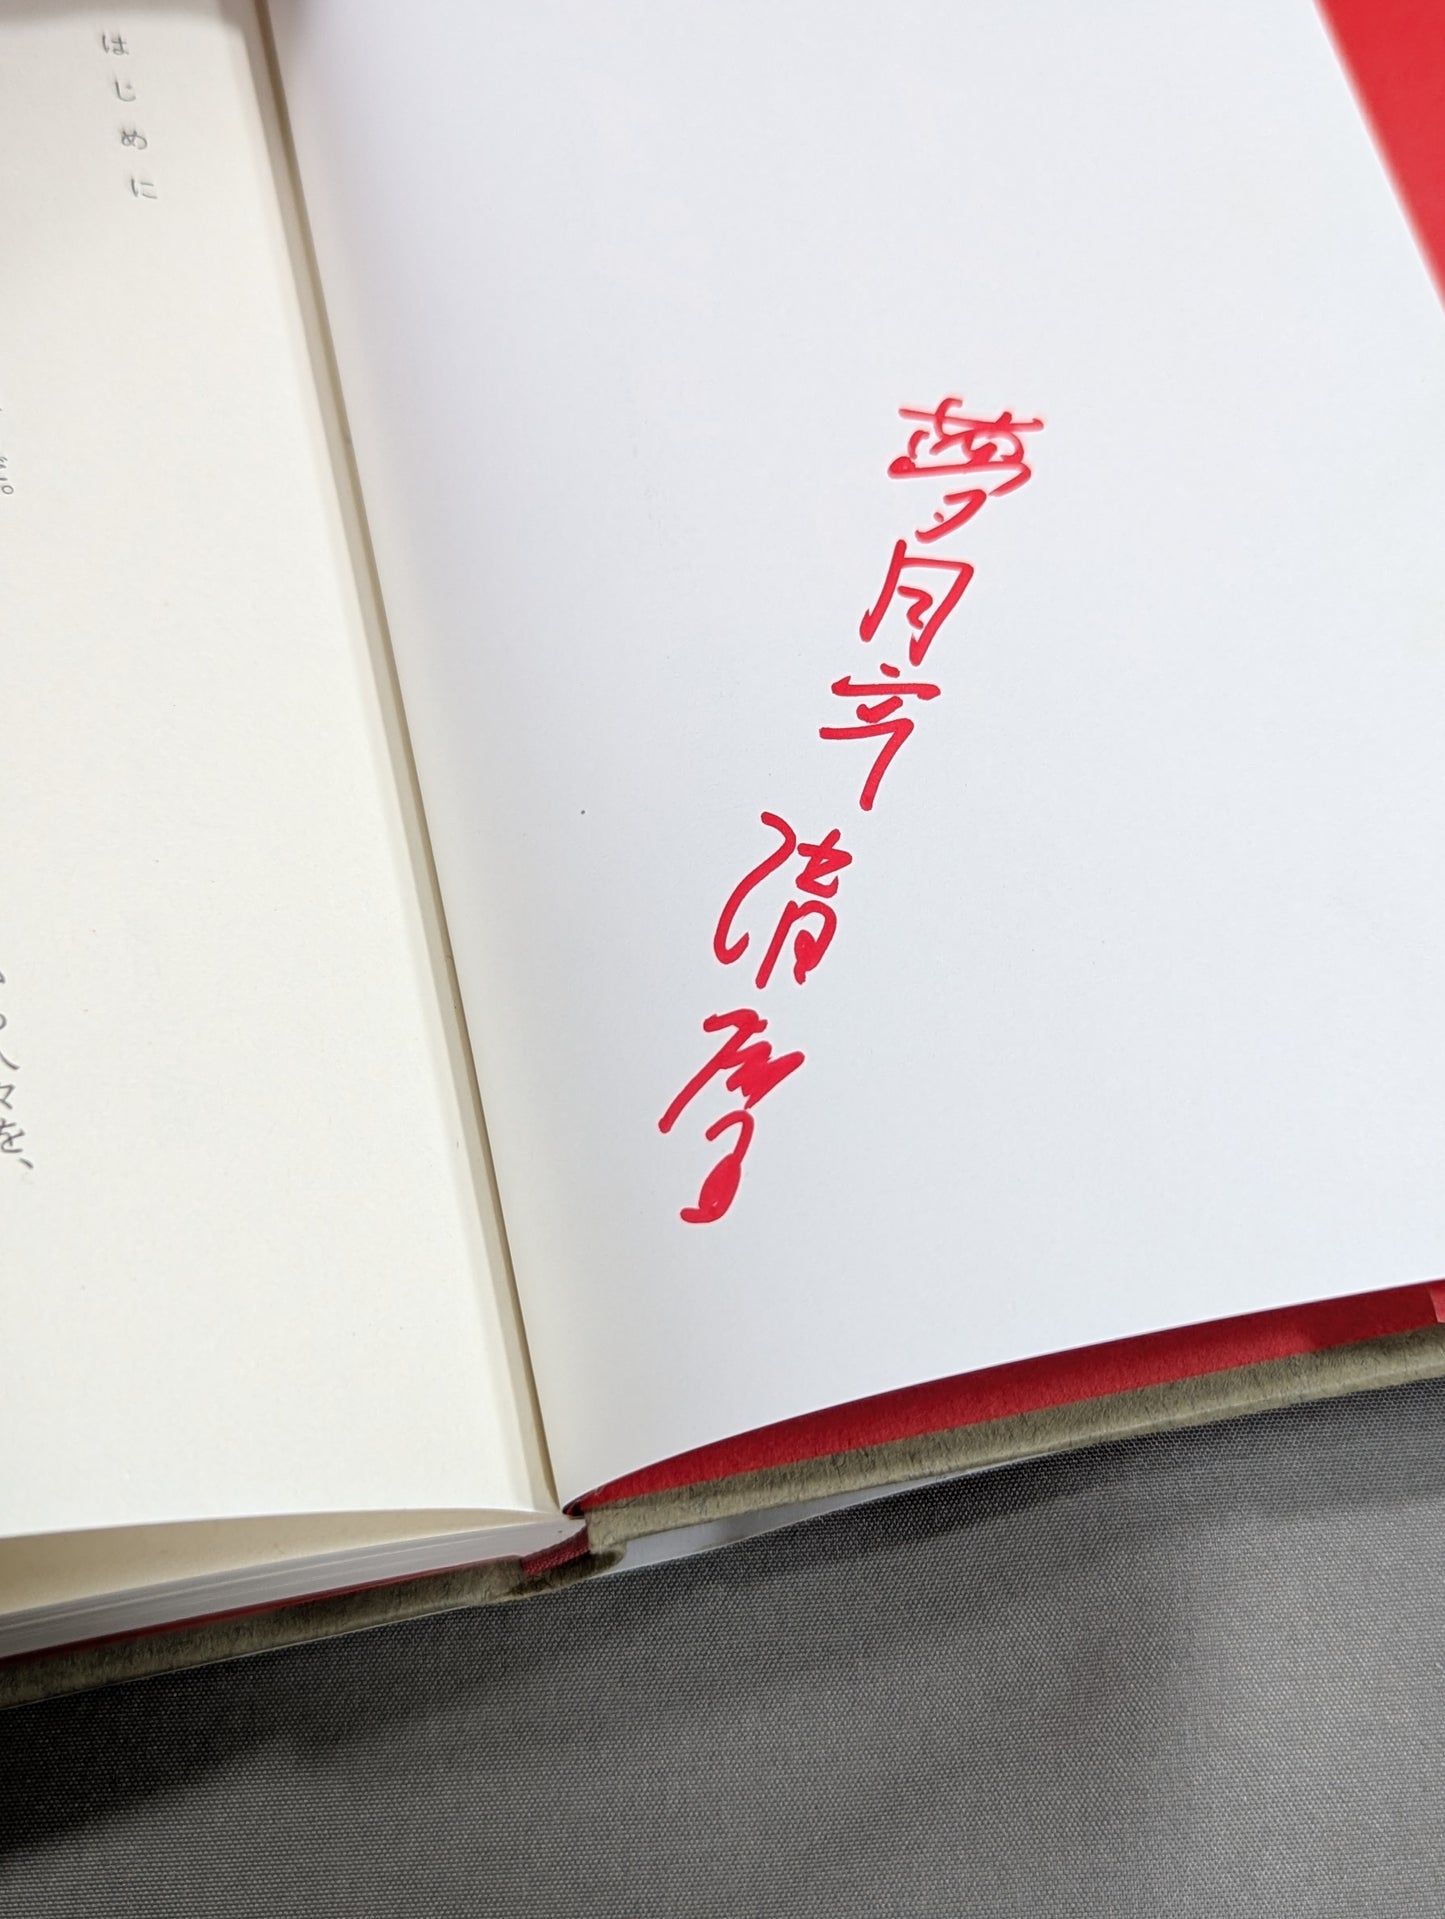 夢月亭清麿
はじめに
人々を、